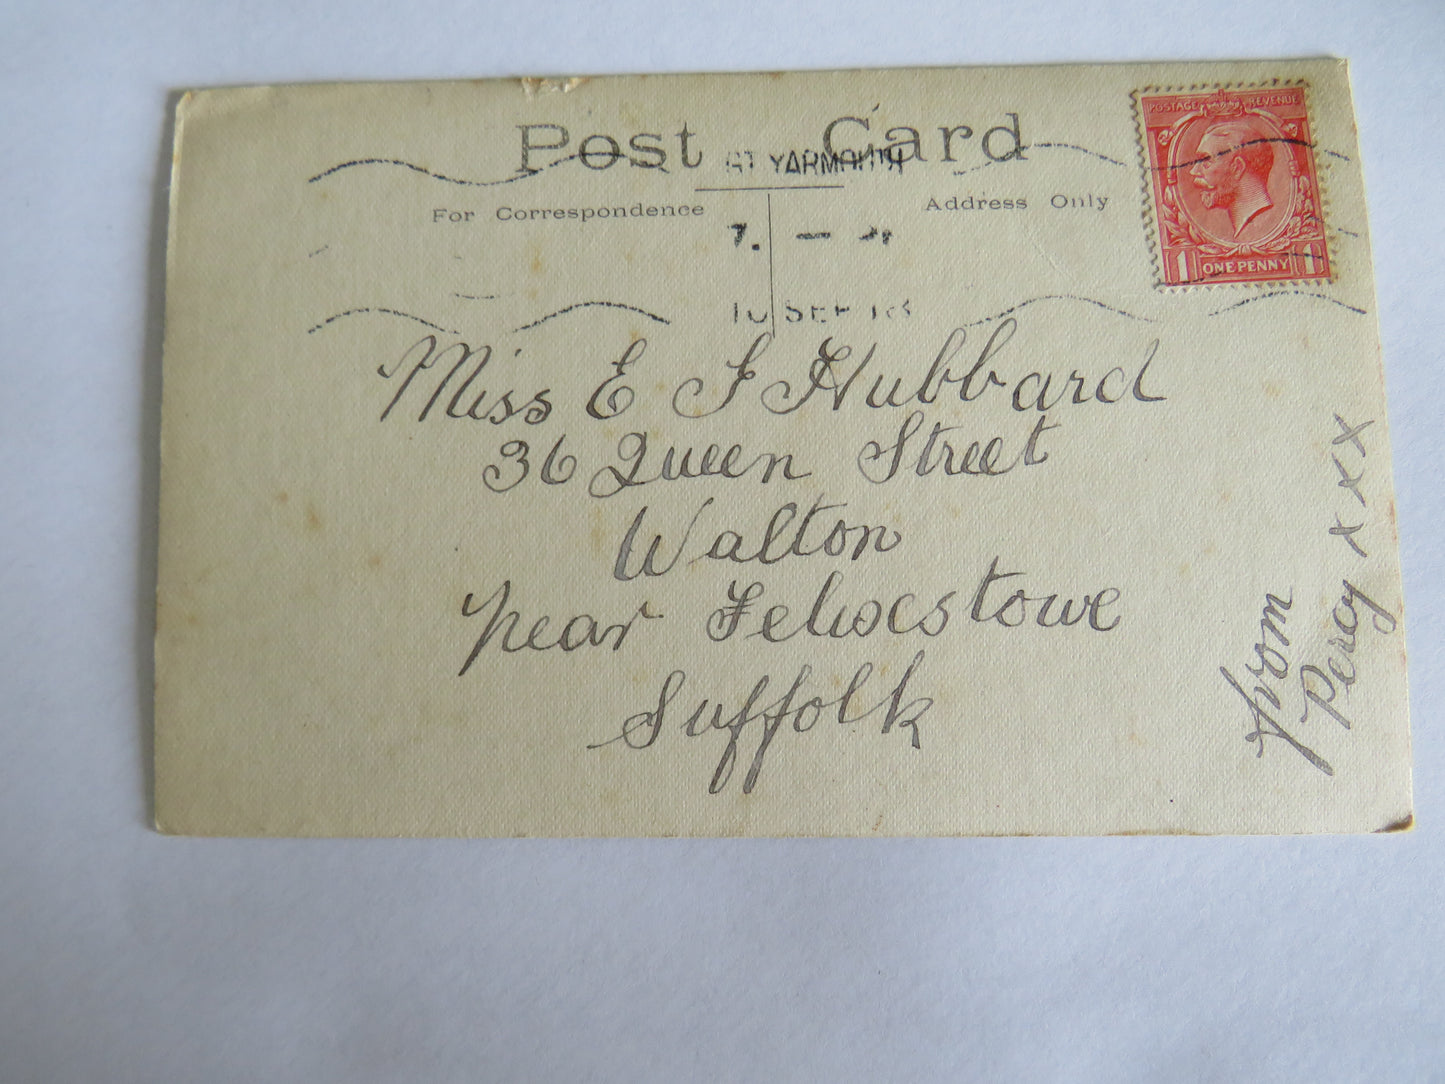 Post Card
GT YARMOUTH
For Correspondence
Address Only
7. —
10 SEP 18
POSTAGE REVENUE
1 ONE PENNY 1
Miss E F Hubbard
36 Queen Street
Walton
near Felixestowe
Suffolk
from
Percy x x x